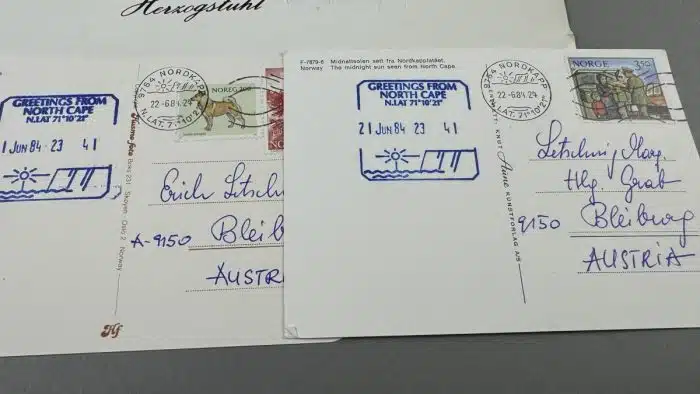 Herzogstuhl
GREETINGS FROM
NORTH CAPE
N.LAT 71°10'21"
1 JUN 84 - 23 41
9764 NORDKAPP
22-6.84.24
N. LAT. 71°10'21"
NOREG 200
NO
Erich
A-9150 Bleib
AUSTRI
Box 231 Skøyen Oslo 2 Norway
F-7879-6 Midnattsolen sett fra Nordkapplatået.
Norway The midnight sun seen from North Cape.
GREETINGS FROM
NORTH CAPE
N.LAT 71°10'21"
21 JUN 84 23 41
9764 NORDKAPP
22-6.84.24
N. LAT. 71°10'21"
NORGE 3,50
KNUT Aune KUNSTFORLAG A/S
Letschnig Marg.
Hlg. Grab
9150 Bleiburg
AUSTRIA